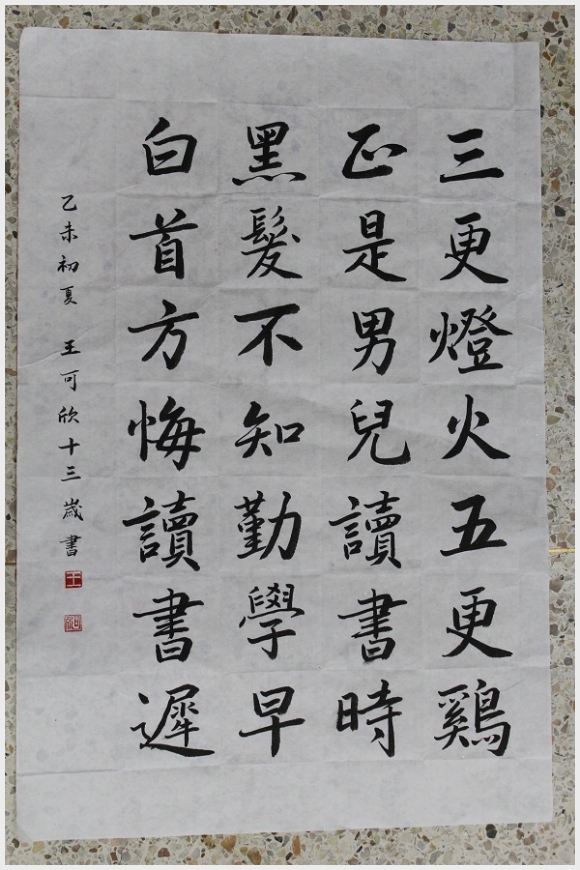 三更燈火五更鷄
正是男兒讀書時
黑髮不知勤學早
白首方悔讀書遲
乙未初夏 王可欣十三歲書
王